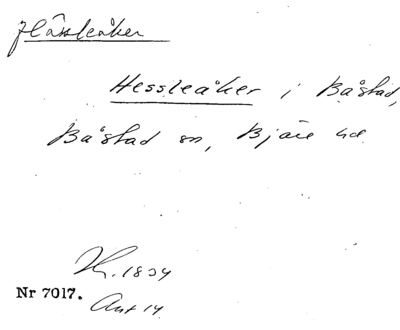 Hässleåker
Hessleåker i Båstad,
Båstad sn, Bjäre hd
Kr. 1834
Nr 7017.
Akt 14